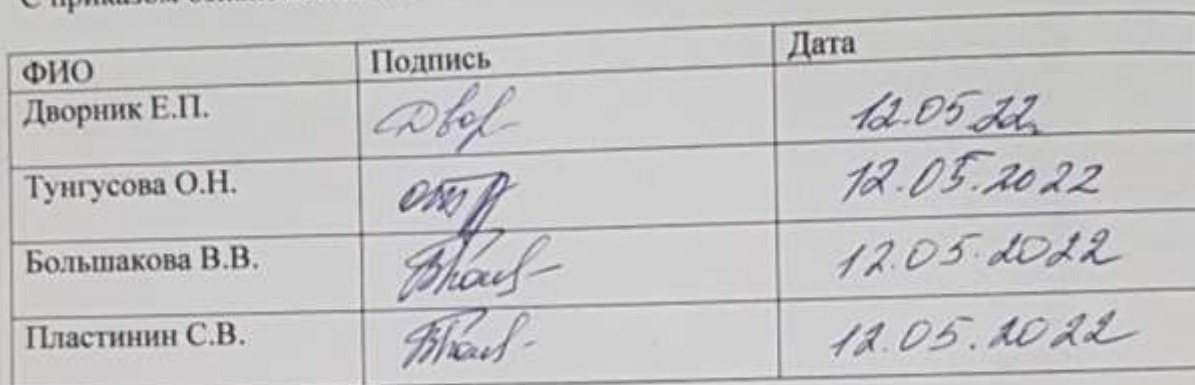 С приказом
ФИО Подпись Дата
Дворник Е.П. Двор 12.05.22
Тунгусова О.Н. 12.05.2022
Большакова В.В. 12.05.2022
Пластинин С.В. 12.05.2022